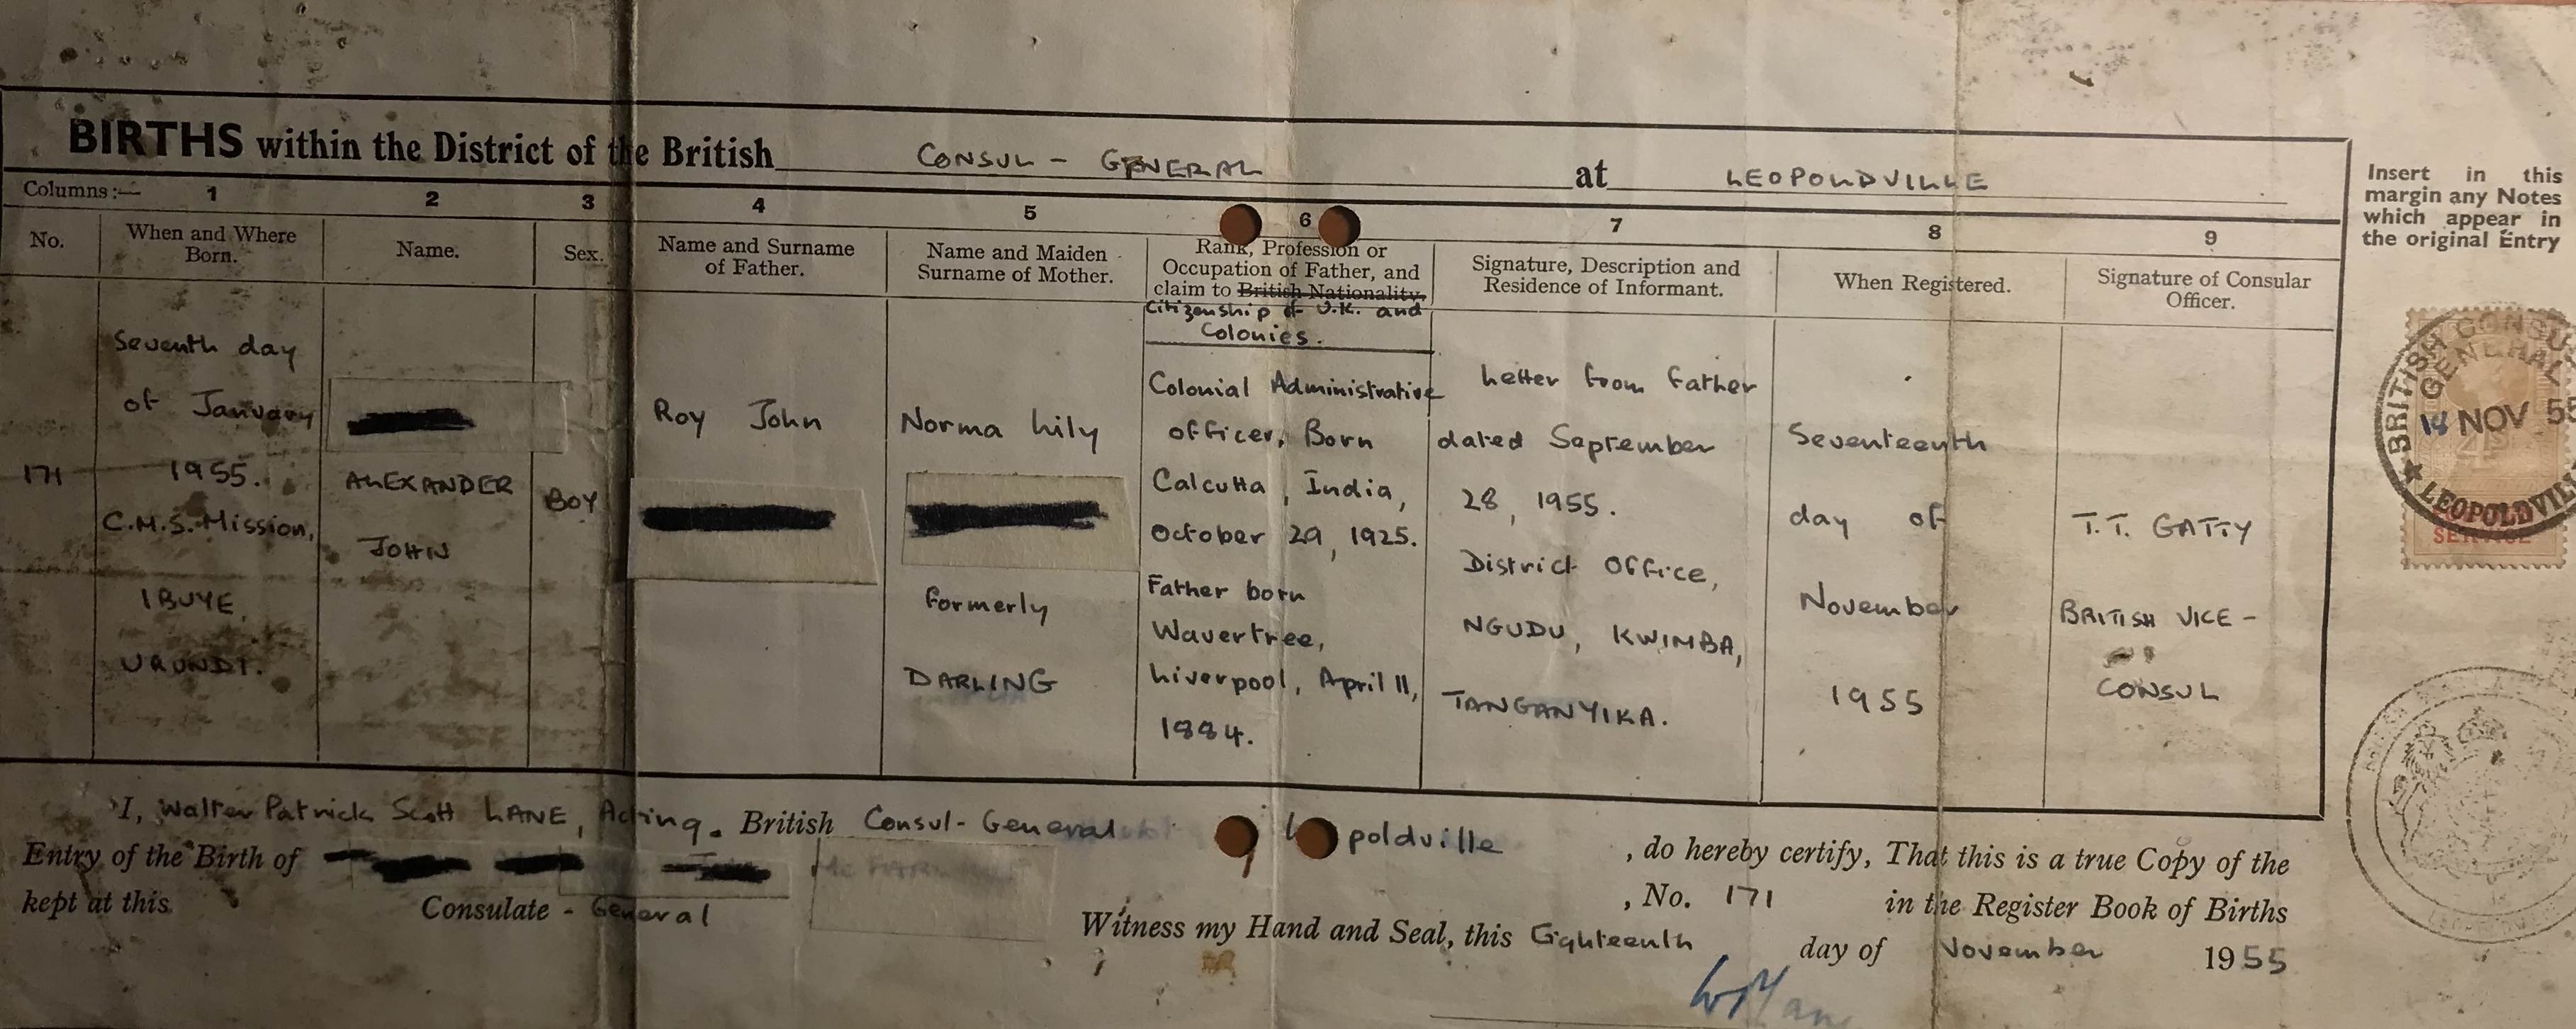 BIRTHS within the District of the British CONSUL - GENERAL at LEOPOLDVILLE
Insert in this
margin any Notes
which appear in
the original Entry
Columns :— 1 2 3 4 5 6 7 8 9
No.
When and Where
Born.
Name.
Sex.
Name and Surname
of Father.
Name and Maiden
Surname of Mother.
Rank, Profession or
Occupation of Father, and
claim to British Nationality.
Citizenship of U.K. and
Colonies.
Signature, Description and
Residence of Informant.
When Registered.
Signature of Consular
Officer.
171
Seventh day
of January
1955.
C.M.S. Mission,
IBUYE,
URUNDI.
ALEXANDER
JOHN
BOY
Roy John
Norma Lily
formerly
DARLING
Colonial Administrative
officer, Born
Calcutta, India,
October 29, 1925.
Father born
Wavertree,
Liverpool, April 11,
1884.
Letter from father
dated September
28, 1955.
District Office,
NGUDU, KWIMBA,
TANGANYIKA.
Seventeenth
day of
November
1955
T.T. GATTY
BRITISH VICE -
CONSUL
BRITISH CONSU
GENERAL
18 NOV 55
LEOPOLDVILL
SERVICE
I, Walter Patrick Scott LANE, Acting British Consul-General poldville , do hereby certify, That this is a true Copy of the
Entry of the Birth of , No. 171 in the Register Book of Births
kept at this Consulate - General
Witness my Hand and Seal, this Eighteenth day of November 1955